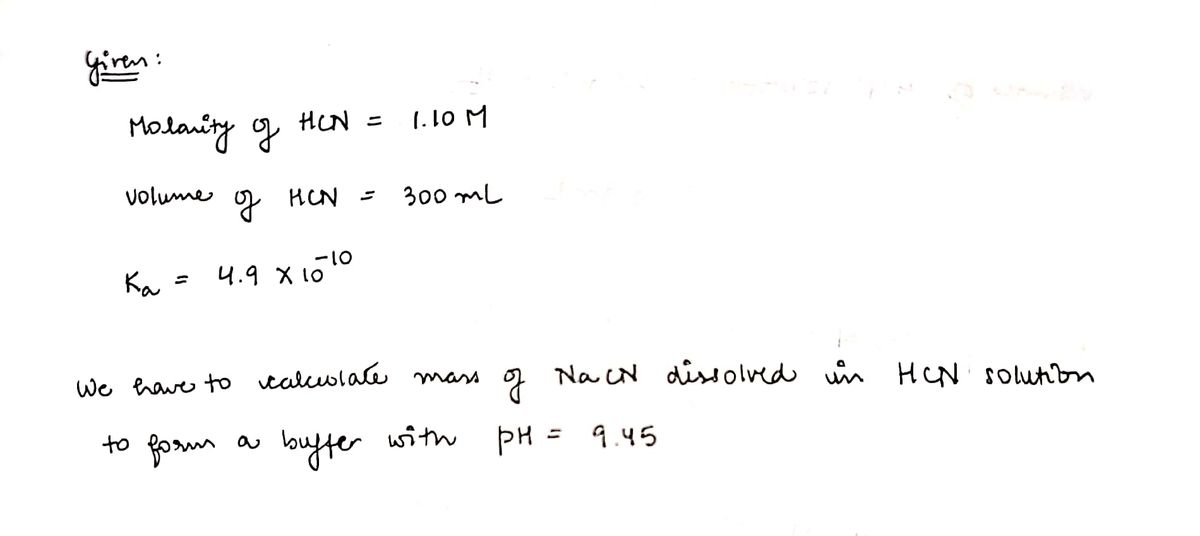 Given:
Molarity of HCN = 1.10 M
Volume of HCN = 300 mL
Ka = 4.9 X 10⁻¹⁰
We have to calculate mass of NaCN dissolved in HCN solution
to form a buffer with pH = 9.45